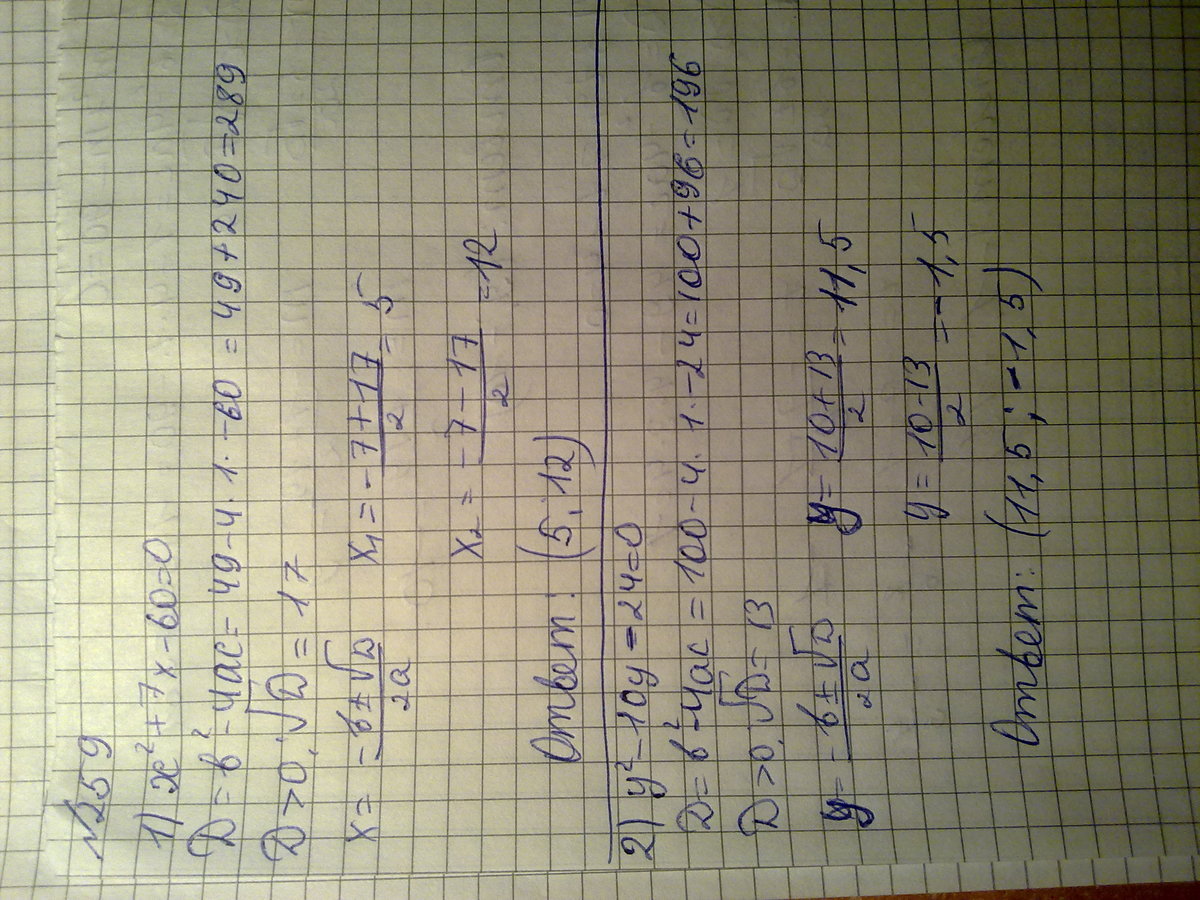 №259
1) x²+7x-60=0
D=b²-4ac=49-4·1·-60=49+240=289
D>0, √D=17
x=-b±√D/2a x₁=-7+17/2=5
x₂=-7-17/2=12
Ответ: (5; 12)
2) y²-10y-24=0
D=b²-4ac=100-4·1·-24=100+96=196
D>0, √D=13
y=-b±√D/2a y=10+13/2=11,5
y=10-13/2=-1,5
Ответ: (11,5; -1,5)